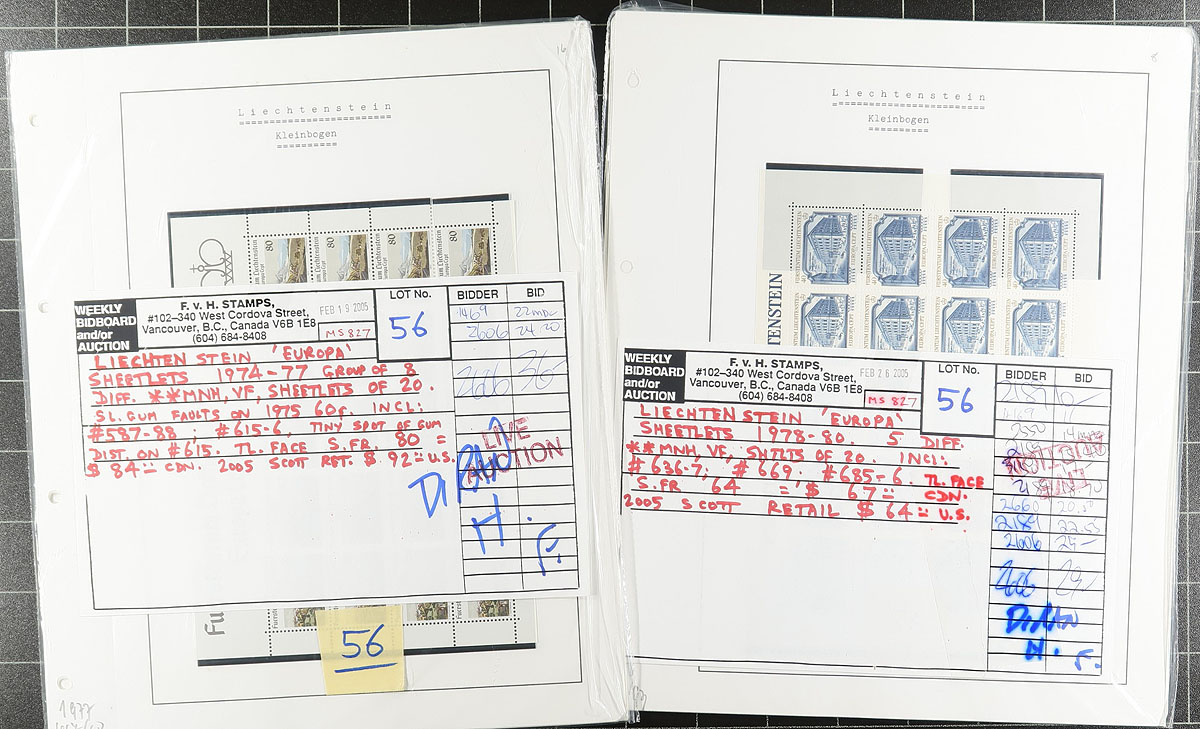 16
Liechtenstein
Kleinbogen
80 80 80 80
WEEKLY
BIDBOARD
and/or
AUCTION
F. v H. STAMPS,
#102–340 West Cordova Street,
Vancouver, B.C., Canada V6B 1E8
(604) 684-8408
FEB 19 2005
MS 827
LOT No.
56
BIDDER BID
1469
2606 24.20
LIECHTENSTEIN 'EUROPA'
SHEETLETS 1974-77 GROUP OF 8
DIFF. **MNH, VF, SHEETLETS OF 20.
SL. GUM FAULTS ON 1975 60r. INCL:
#587-88; #615-6, TINY SPOT OF GUM
DIST. ON #615. TL. FACE S.FR. 80 =
$ 84 CDN. 2005 SCOTT RET. $ 92 U.S.
LIVE
AUCTION
H.
F.
56
1977
8
Liechtenstein
Kleinbogen
FÜRSTENTUM LIECHTENSTEIN
EUROPA CEPT
TENSTEIN
WEEKLY
BIDBOARD
and/or
AUCTION
F. v H. STAMPS,
#102–340 West Cordova Street,
Vancouver, B.C., Canada V6B 1E8
(604) 684-8408
FEB 26 2005
MS 827
LOT No.
56
BIDDER BID
2189
1469
2660
2189 22.55
2606 25–
LIECHTENSTEIN 'EUROPA'
SHEETLETS 1978-80. 5 DIFF.
**MNH, VF, SHTLTS OF 20. INCL:
#636-7; #669, #685-6. TL. FACE
S.FR 64 = $ 67 CDN.
2005 SCOTT RETAIL $ 64 U.S.
H.
F.